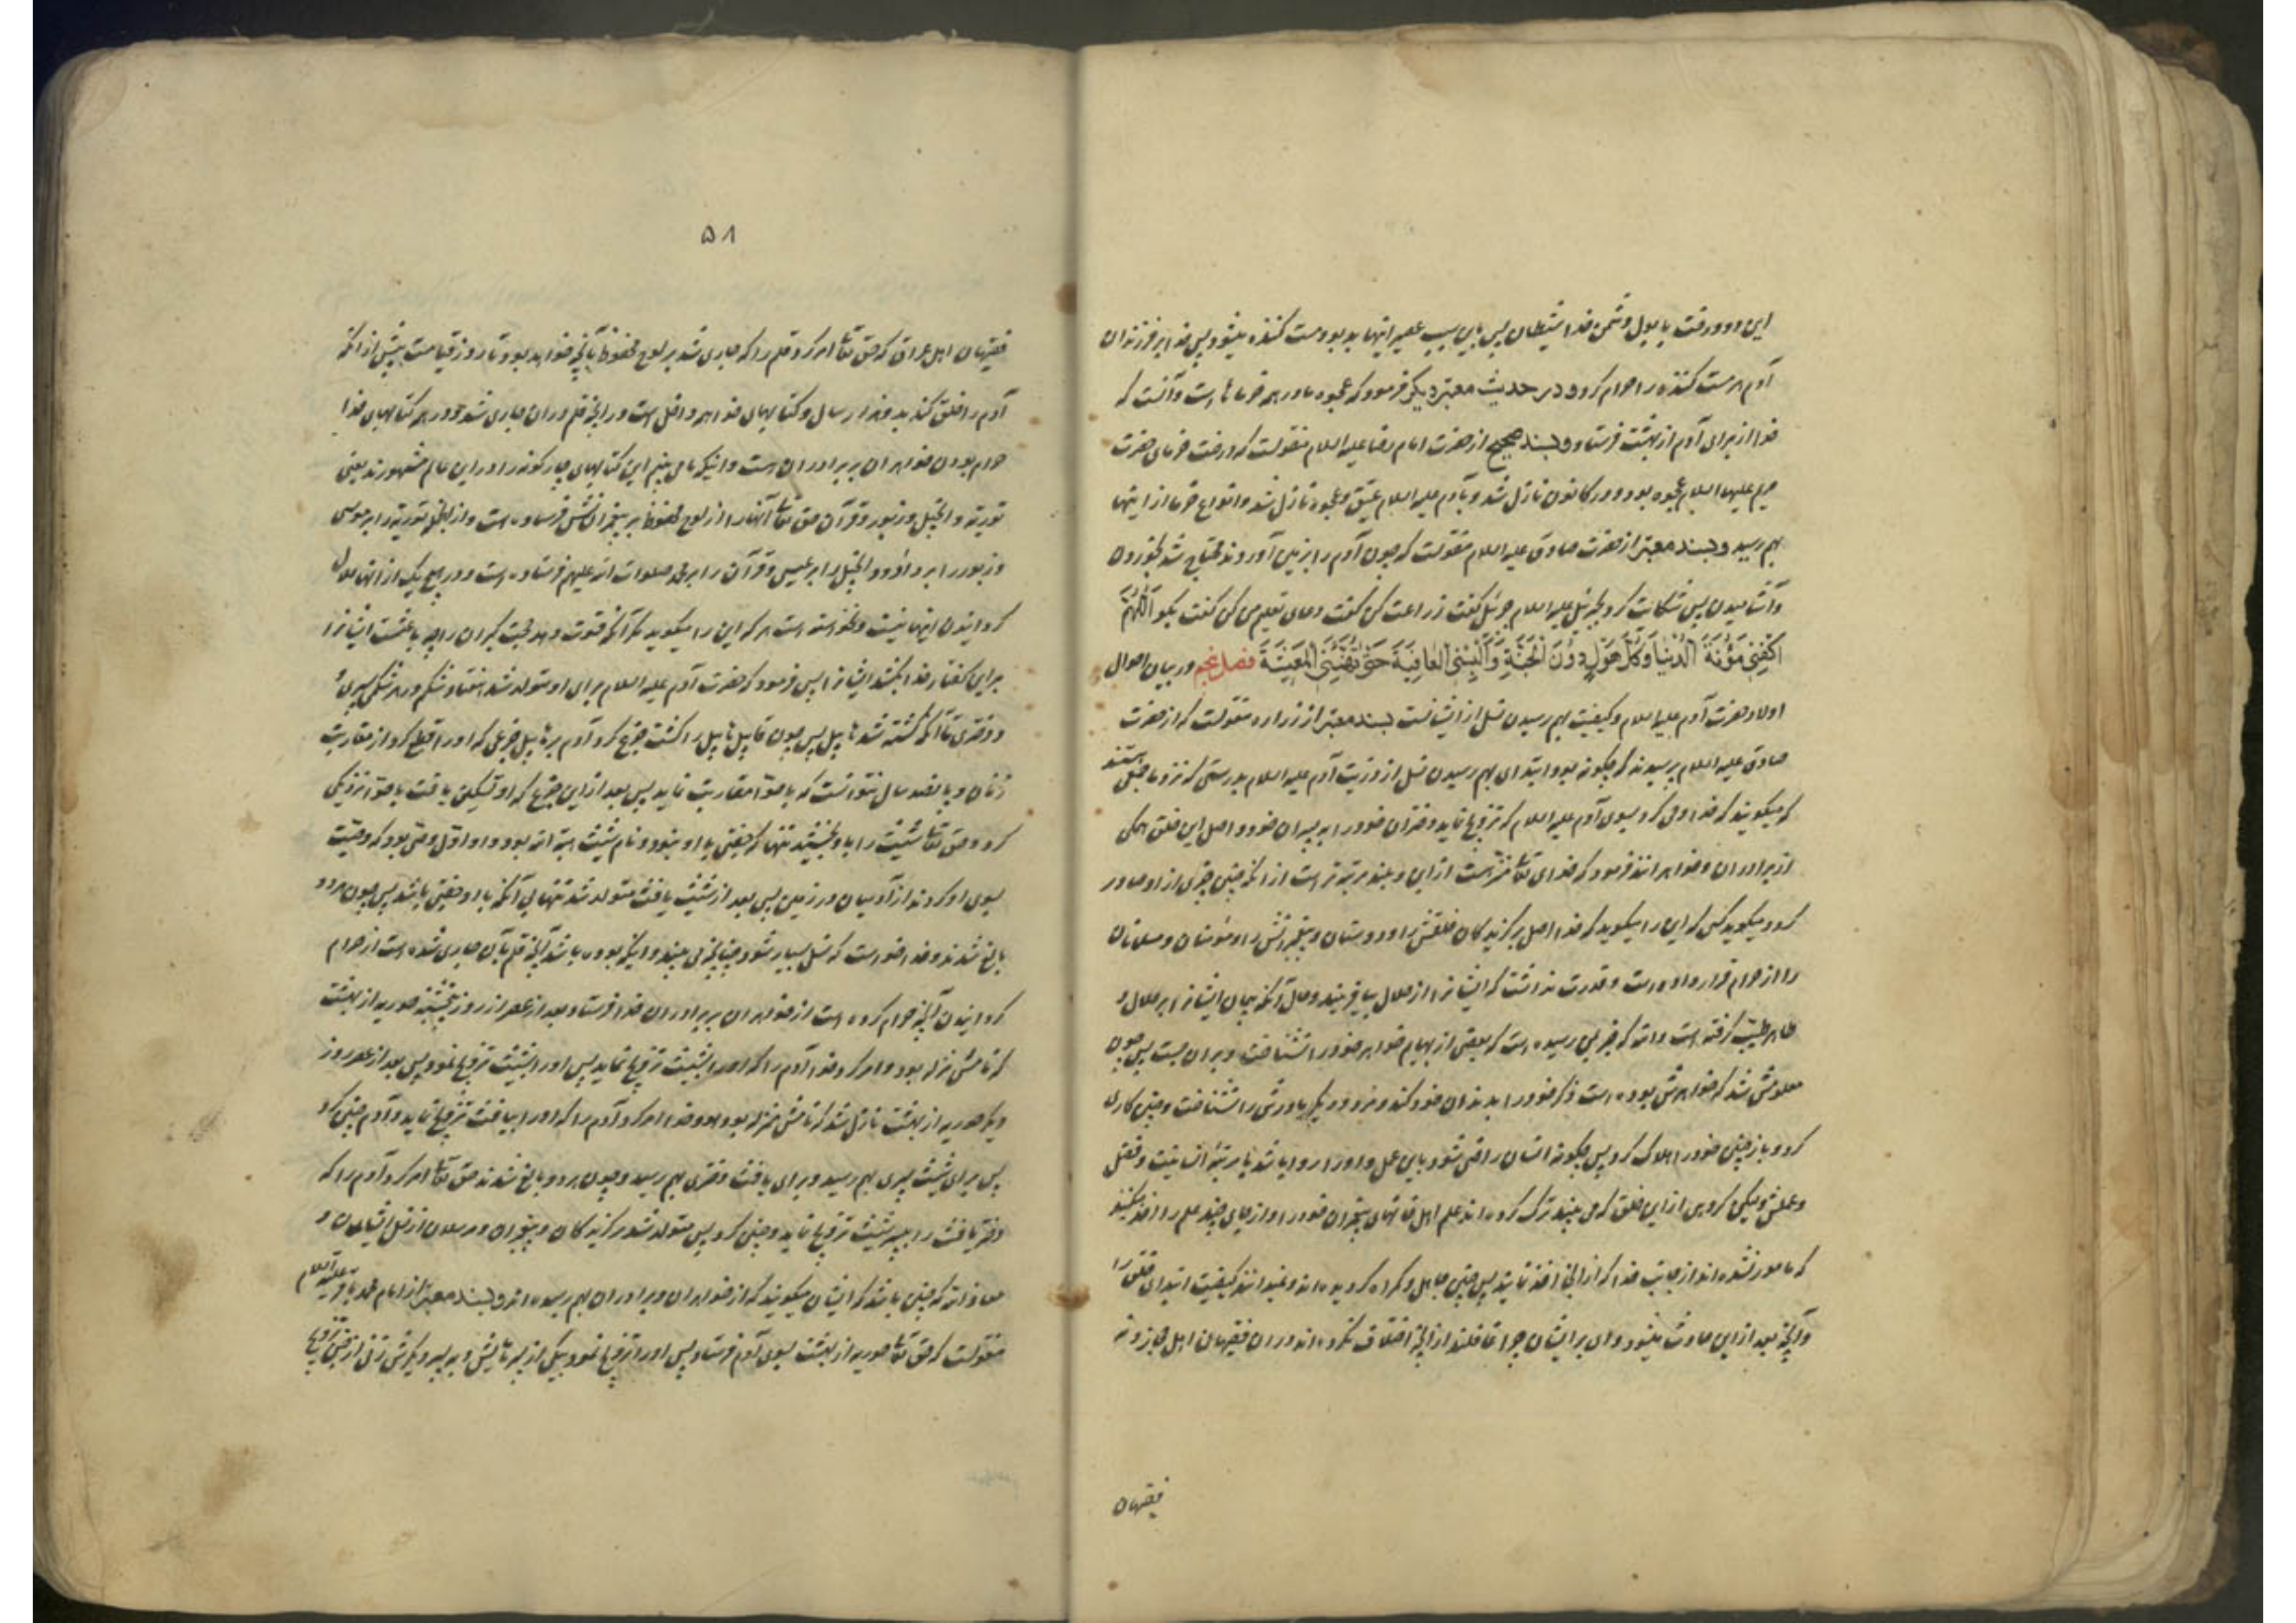 این دو درخت با بول دشمن خدا شیطان پس باین سبب عصیر اینها بد بو و مست کننده میشود پس خدا بر فرزندان
آدم هر مست کننده را حرام کرد و در حدیث معتبر دیگر فرمود که عجوه مادر همه خرماها است و آنست که
خدا از برای آدم از بهشت فرستاد و بسند صحیح از حضرت امام رضا علیه السلام منقولست که درخت خرمای حضرت
مریم علیها السلام عجوه بود و در کانون نازل شد و با آدم علیه السلام عتیق و عجوه نازل شد و انواع خرما از اینها
بهم رسید و بسند معتبر از حضرت صادق علیه السلام منقولست که چون آدم را بزمین آوردند محتاج شد بخوردن
و آشامیدن پس شکایت کرد بجبرئیل علیه السلام جبرئیل گفت زراعت کن گفت دعای تعلیم من کن گفت بگو اَللّٰهُمَّ
اکْفِنِی مَؤُنَةَ الدُّنْیَا وَکُلَّ هَوْلٍ دُوْنَ الْجَنَّةِ وَاَلْبِسْنِی الْعَافِیَةَ حَتّٰی تُهَنِّئَنِی الْمَعِیْشَةَ فصل پنجم در بیان احوال
اولاد حضرت آدم علیه السلام و کیفیت بهم رسیدن نسل از ایشانست بسند معتبر از زراره منقولست که از حضرت
صادق علیه السلام پرسیدند که چگونه بود ابتدای بهم رسیدن نسل از ذریت آدم علیه السلام بدرستی که نزد ما جمعی هستند
که میگویند که خدا وحی کرد بسوی آدم علیه السلام که تزویج نماید دختران خود را به پسران خود و اصل این خلق همگی
از برادران و خواهرانند فرمود که خدای تعالی منزه است ازین و بلند مرتبه تر است از آنکه چنین چیزی از او صادر
گردد میگوید کسی که این را میگوید که خدا اصل برگزیدگان خلقش را و دوستان و پیغمبرانش را و مؤمنان و مسلمانان
را از حرام قرار داده است و قدرت نداشت که ایشانرا از حلال بیافریند و حال آنکه پیمان ایشانرا بر حلال و
طاهر طیب گرفته است والله که خبر بمن رسیده است که بعضی از بهایم خواهر خود را نشناخت و بر آن جست پس چون
معلومش شد که خواهرش بوده است ذکر خود را بدندان خود کند و مرد و دیگری مادرش را نشناخت و چنین کاری
کرد و باز چنین خود را هلاک کرد پس چگونه انسان راضی شود باین عمل و او را روا باشد با مرتبه انسانیت و فضل
و عملش ولیکن گروهی از این خلق که می بینید ترک کرده اند علم اهل خانهای پیغمبران خود را و از جای چند علم را اخذ میکنند
که مامور نشده اند از جانب خدا که از آنجا اخذ نمایند پس چنین جاهل و گمراه گردیده اند و نمیدانند کیفیت ابتدای خلق را
و آنچه بعد ازین حادث میشود وای بر ایشان چرا غافلند از آنچه اختلاف نکرده اند در ان فقیهان اهل حجاز و نه
فقیهان
۵۸
فقیهان اهل عراق که حق تعالی امر کرد قلم را که جاری شد بر لوح محفوظ بآنچه خواهد بود تا روز قیامت پیش از آنکه
آدم را خلق کند بدو هزار سال و کتابهای خدا همه داخل است در آنچه قلم در ان جاری شد و در همه کتابهای خدا
حرام بودن خواهران بر برادران است و اینک ما می بینیم این کتابهای چهارگونه را در این عالم مشهورند یعنی
توریة و انجیل و زبور و قرآن حق تعالی آنها را از لوح محفوظ بر پیغمبرانش فرستاده است و از انجمله توریة را بر موسی
و زبور را بر داوود و انجیل را بر عیسی و قرآن را بر محمد صلوات الله علیهم فرستاده است و در هیچ یک از آنها حلال
گردانیدن اینها نیست و نخواسته است هر که این را میگوید مگر آنکه قوت دهد حجت گبران را چه باعثست ایشانرا
بر این گفتار خدا بکشد ایشانرا پس فرمود که حضرت آدم علیه السلام برای او متولد شد هفتاد شکم در هر شکمی پسری
و دختری تا آنکه کشته شد هابیل پس چون قابیل هابیل را کشت جزع کرد آدم بر هابیل جزعی که او را قطع کرد از مقاربت
زنان و پانصد سال نتوانست که با حوا مقاربت نماید پس بعد ازین جزع که او تسکین یافت با حوا نزدیکی
کرد و حق تعالی شیث را باو بخشید تنها که جفتی با او نبود و نام شیث هبة الله بود و او اول وصی بود که وصیت
بسوی او کردند از آدمیان در زمین پس بعد از شیث یافث متولد شد تنها بی آنکه با او جفتی باشد پس چون هر دو
بالغ شدند و خدا خواست که نسل بسیار شود چنانچه می بینید و اینکه بوده باشد آنچه قلم بآن جاری شده است از حرام
گردانیدن آنچه حرام کرده است از خواهران بر برادران خدا فرستاد بعد از عصر از روز پنجشنبه حوریه از بهشت
که نامش نزله بود و امر کرد خدا آدم را که او را بشیث تزویج نماید پس او را بشیث تزویج نمود پس بعد از عصر روز
دیگر حوریه از بهشت نازل شد که نامش منزله بود و خدا امر کرد آدم را که او را بیافث تزویج نماید و آدم چنین کرد
پس برای شیث پسری بهم رسید و برای یافث دختری بهم رسید و چون هر دو بالغ شدند حق تعالی امر کرد آدم را که
دختر یافث را به پسر شیث تزویج نماید و چنین کرد پس متولد شد برگزیدگان و پیغمبران و مرسلان از نسل ایشان و
معاذ الله که چنین باشد که ایشان میگویند که از خواهران و برادران بهم رسیده اند و بسند معتبر از امام محمد باقر علیه السلام
منقولست که حق تعالی حوریه از بهشت بسوی آدم فرستاد پس او را تزویج نمود بیکی از پسرهایش و به پسر دیگرش زنی از جن تزویج